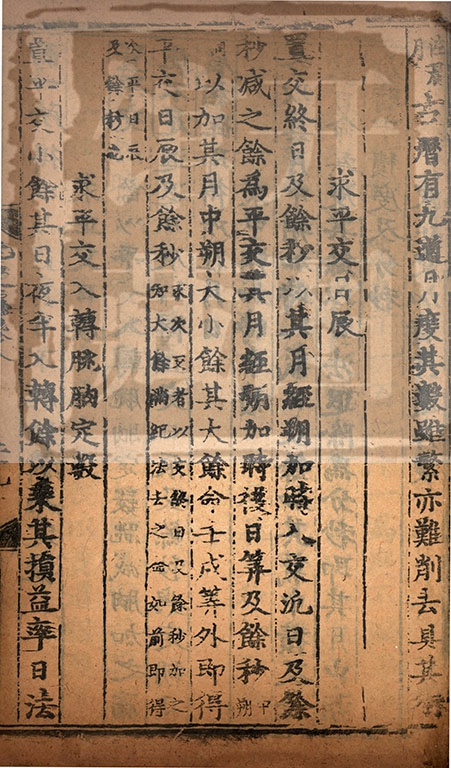 古曆有九道月度其數雖繁亦難削去具其
求平交日辰
置交終日及餘秒以其月經朔加時入交汎日及餘
秒減之餘為平交其月經朔加時後日筭及餘秒中朔
以加其月中朔大小餘其大餘命壬戌筭外即得
平交日辰及餘秒求次交者以交終日及餘秒加之如大餘滿紀法去之命如前即得
次平交日辰及餘秒也
求平交入轉朓朒定數
置平交小餘其日夜半入轉餘以乘其損益率日法